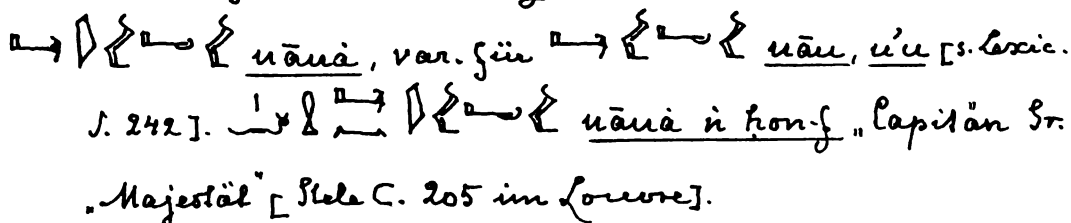 uāuȧ, var. für uāu, u'u [s. Lexic.
S. 242]. uāuȧ ṅ ḥon-f „Capitän Sr.
„Majestät“ [Stele C. 205 im Louvre].